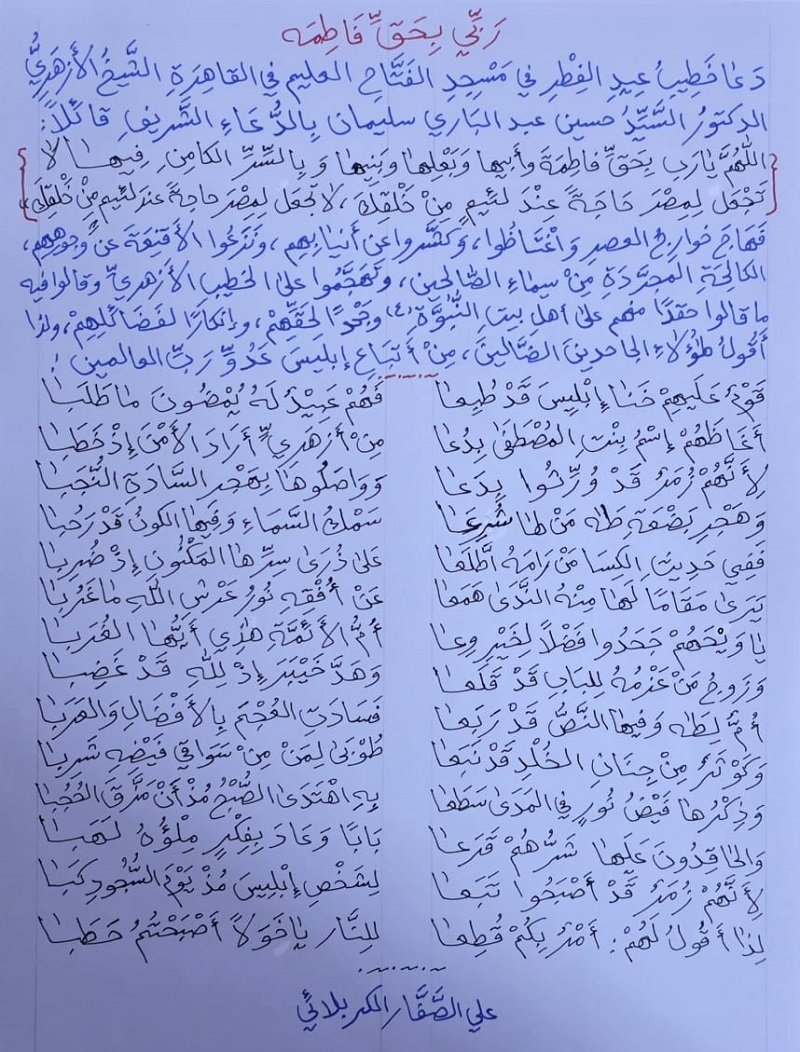 رَبِّي بِحَقِّ فَاطِمَه
دَعَا خَطِيبُ عِيدِ الفِطْرِ فِي مَسْجِدِ الفَتَّاحِ العليم في القاهِرَةِ الشَّيخُ الأَزْهَرِيُّ
الدكتورُ السَّيِّدُ حسين عبد البَاري سليمان بِالدُّعَاءِ الشَّرِيفِ قائلاً:
{اللَّهُمَّ يَارَب بِحَقِّ فَاطِمَةَ وأبيها وَبَعْلِها وبَنِيها وَبِالسِّرِّ الكامِنِ فِيهَا لا
تَجْعَل لِمِصْرَ حَاجَةً عِنْدَ لَئِيمٍ مِنْ خَلْقِكَ، لا تجعَل لِمِصْرَ حاجةً عِندَ لئيمٍ مِنْ خَلْقِكَ}
فَهَاجَ خوارِجُ العصرِ وَاغْتَاظُوا، وَكَشَّروا عن أنيابِهِم، ونَزَعُوا الأَقنِعَةَ عن وجوهِهِم،
الكالِحَةِ المجرَّدَةِ مِنْ سِيمَاءِ الصَّالحين، وتَهَجَّمُوا على الخطيب الأزهريِّ وقالوا فيه
ما قالوا حقدًا منهم على أهل بيتِ النُّبُوَّةِ (ع) وجَحْدًا لِحَقِّهِمْ، وإنكارًا لفَضَائِلِهِمْ، ولذا
أَقُولُ لهؤُلاءِ الجاحدينَ الضَّالينَ، مِنْ أَتبَاعِ إبليسَ عَدُوِّ رَبِّ العالمين:
قَوْمٌ عَلَيهِمْ خَنَا إبْلِيسَ قَدْ طُبِعَا فَهُمْ عَبِيدٌ لَهُ يُمْضُونَ مَا طَلَبَا
أغَاظَهُمْ إسْمُ بِنْتِ المُصْطَفَى بِدُعَا مِنْ أزهَرِيٍّ أرَادَ الأَمْنَ إذْ خَطَبَا
لِأَنَّهُمْ زُمَرٌ قَدْ وُرِّثُوا بِدَعَا وَوَاصَلُوهَا بِهَجْرِ السَّادَةِ النُّجَبَا
وَهَجْرِ بَضْعَةِ طَه مَنْ لها شُرِعَا سَمْكُ السَّمَاءِ وَفِيهَا الكونُ قَدْ رَحُبَا
فَفِي حَدِيثِ الكِسَا مَنْ رَامَهُ اطَّلَعَا عَلَى ذُرَى سِرِّهَا المَكْنُونِ إذْ ضُرِبَا
يَرَى مَقَامًا لَهَا مِنْهُ النَّدَى هَمَعَا عَنْ أُفْقِهِ نُورُ عَرْشِ اللّهِ مَا غَرُبَا
يَا وَيْحَهُمْ جَحَدُوا فَضْلاً لِخَيْرِ وِعَا أُمُّ الأَئمَّةِ هَذِي أَيُّهَا الغُرَبَا
وَزَوجُ مَنْ عَزْمُهُ لِلبَابِ قَدْ قَلَعَا وَهَدَّ خَيْبَرَ إذْ لِلّهِ قَدْ غَضِبَا
أُمٌّ لِطَه وَفِيهَا النَّصُّ قَدْ رَبَعَا فَسَادَتِ العُجْمَ بِالأَفْضَالِ وَالعَرَبَا
وَكَوْثَرٌ مِنْ جِنَانِ الخُلْدِ قَدْ نَبَعَا طُوْبَى لِمَنْ مِنْ سَوَاقِي فَيْضِهِ شَرِبَا
وَذِكْرُهَا فَيْضُ نُورٍ فِي المَدَى سَطَعَا بِهِ اهْتَدَى الصُّبْحُ مُذْ أَنْ مَزَّقَ الحُجُبَا
وَالحَاقِدُونَ عَلَيهَا شَرُّهُمْ قَرَعَا بَابًا وَعَادَ بِفِكْرٍ مِلْؤُهُ لَهَبَا
لِأَنَّهُمْ زُمَرٌ قَدْ أَصْبَحُوا تَبَعَا لِشَخْصِ إبْلِيسَ مُذْ يَوْمِ السُّجُودِ كَبَا
لِذَا أَقُولُ لَهُمْ: أَمْرٌ بِكُمْ قُطِعَا لِلنَّارِ يَا خَوَلاً أَصْبَحْتُمُ حَطَبَا
علي الصَّفَّار الكربلائي